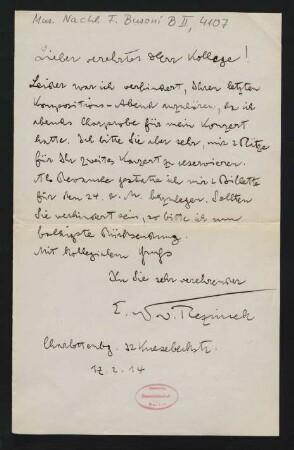 Mus. Nachl. F. Busoni B II, 4107
Lieber verehrter Herr Kollege!
Leider war ich verhindert, Ihren letzten
Kompositions-Abend anzuhören, da ich
abends Chorprobe für mein Konzert
hatte. Ich bitte Sie aber sehr, mir 2 Plätze
für Ihr zweites Konzert zu reservieren.
Als Revanche gestatte ich mir 2 Billette
für den 24. d. M. beizulegen. Sollten
Sie verhindert sein, so bitte ich um
baldigste Rücksendung.
Mit kollegialem Gruss
Ihr Sie sehr verehrender
E. N. v. Reznicek
Charlottenbg. 32 Knesebeckstr.
12. 2. 14